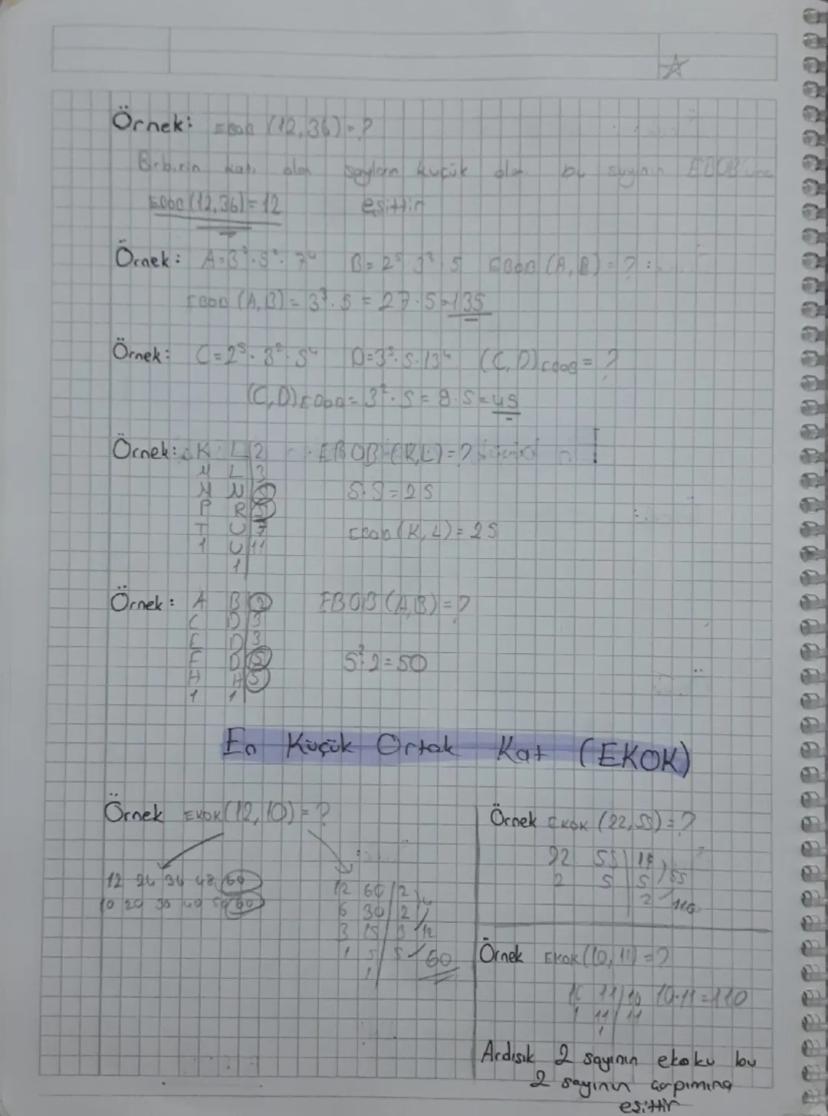 Örnek: EBOB (12,36)=?
Birbirin katı olan sayıların küçük olan bu sayının EBOB'una
EBOB (12,36)=12 eşittir
Örnek: B=2⁵ 3³ 5 EBOB (A,B)=?
EBOB (A,B)= 3³.5 = 27.5=135
Örnek: D=3².5.13⁴ (C,D)EBOB=?
(C,D)EBOB=3².5=9.5=45
Örnek: K L 2 EBOB (K,L)=?
M L 3
M N 5 5.5=25
P R 5
T U 7 EBOB (K,L)=25
1 U 11
1
Örnek: A B 2 EBOB (A,B)=?
C D 3
E D 3
F 5 5².2=50
H H 5
1 1
En Küçük Ortak Kat (EKOK)
Örnek EKOK(12,10)=?
12 24 36 48 60
10 20 30 40 50 60
12 60 2
6 30 2
3 15 3 12
1 5 5 60
1
Örnek EKOK (22,55)=?
22 55
2 5 5 55
2 110
Örnek EKOK(10,11)=?
10 11 10 10.11=110
1 11 11
1
Ardışık 2 sayının ekoku bu
2 sayının çarpımına
eşittir